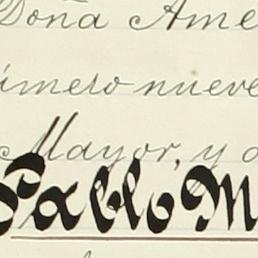 Doña Ame
úmero nueve
Mayor, y d
Pablo M